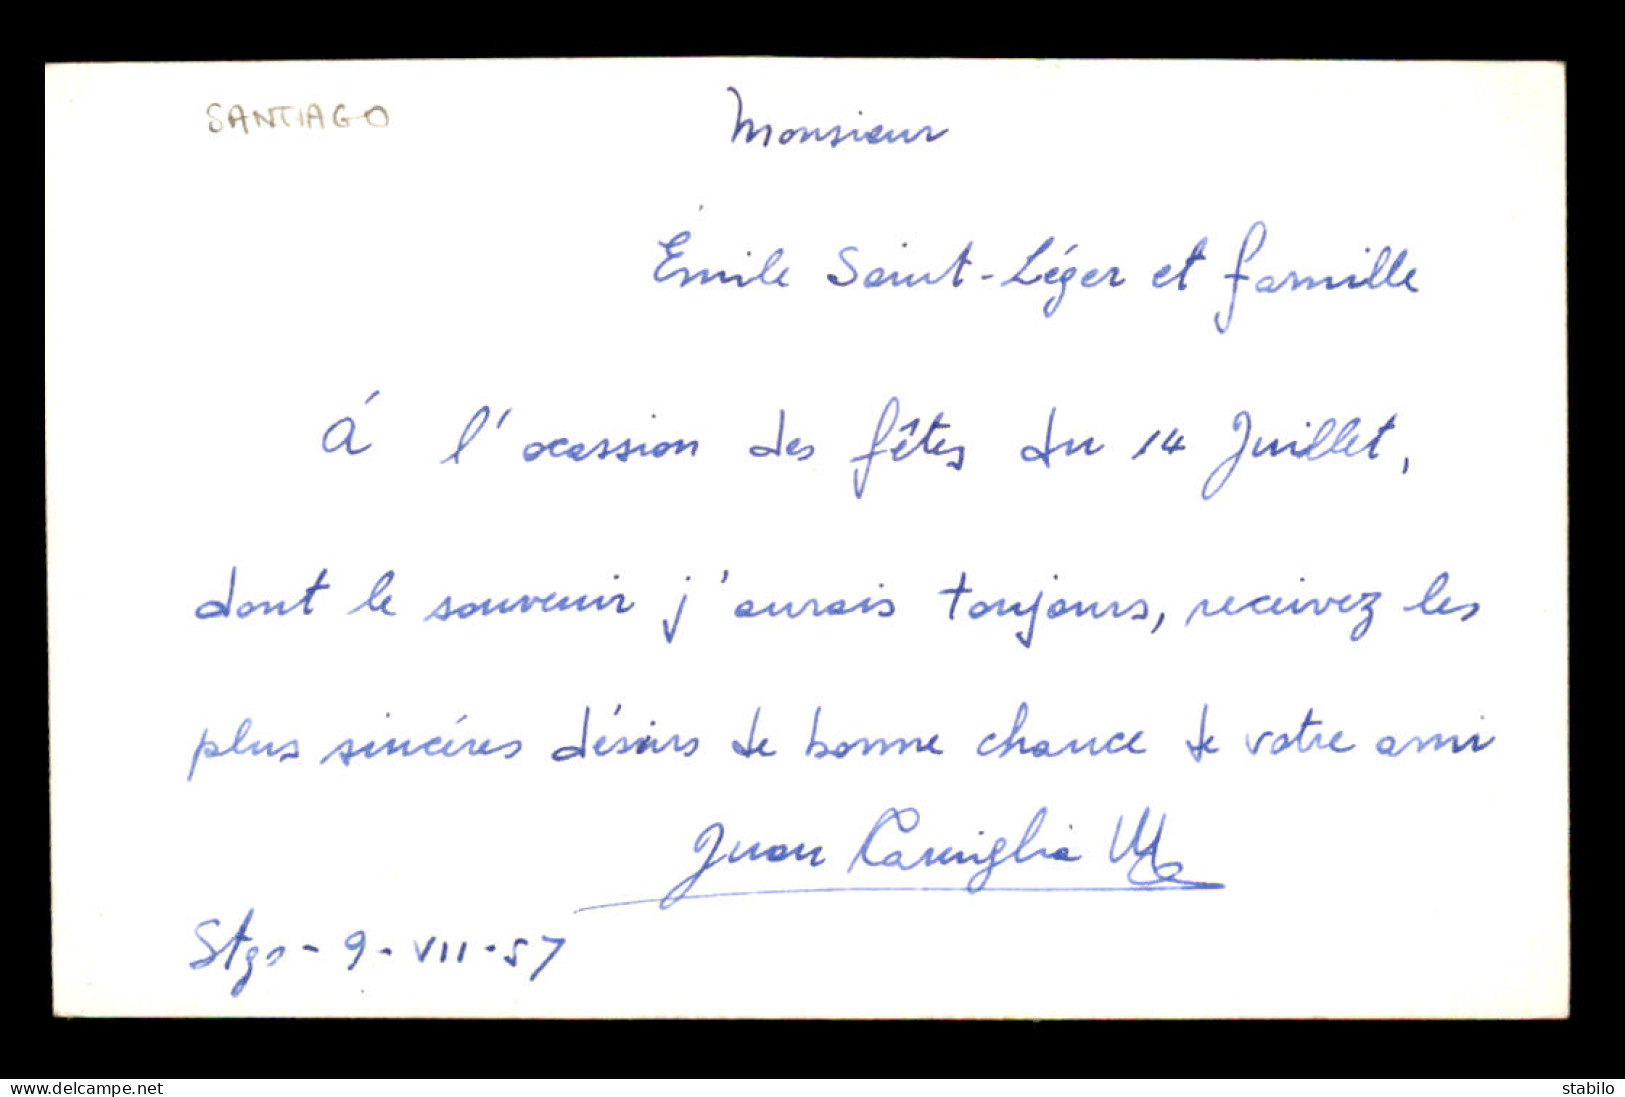 SANTIAGO
Monsieur
Émile Saint-Léger et famille
Á l'ocassion des fêtes du 14 Juillet,
dont le souvenir j'aurais toujours, receivez les
plus sincéres désirs de bonne chance de votre ami
Juan Caviglia M
Stgo - 9 - VII - 57
www.delcampe.net
stabilo